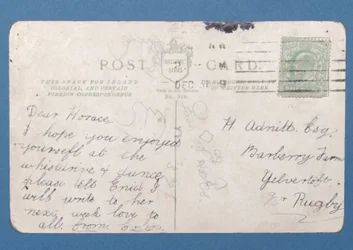 POST CARD.
THIS SPACE FOR INLAND
COLONIAL, AND CERTAIN
FOREIGN CORRESPONDENCE
DEC
Dear Horace
I hope you enjoyed
yourself at the
whistdrive & dance
please tell Enid I
will write to her
next week love to
all. from
H Adnitt Esq.
Barberry Farm
Yelvertoft
Nr Rugby